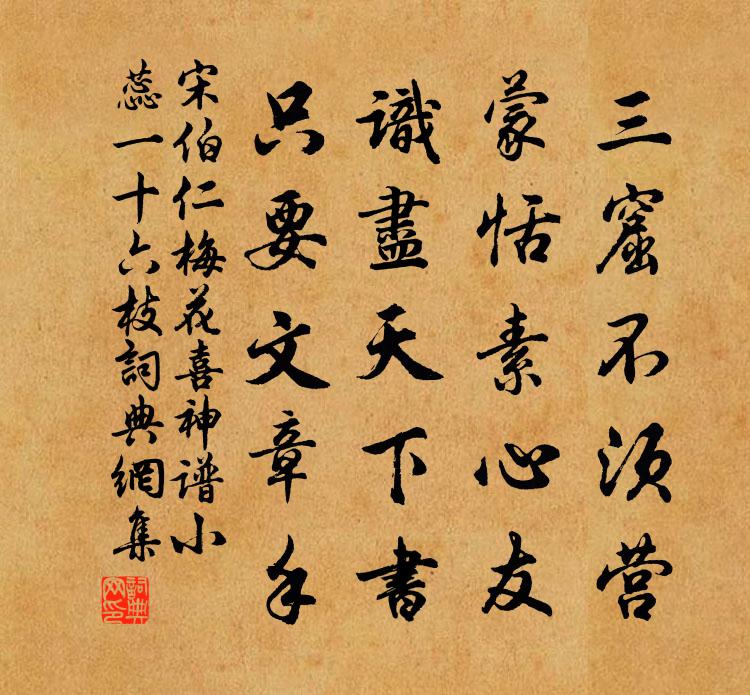 三窟不须营
蒙恬素心友
識盡天下書
只要文章手
宋伯仁梅花喜神谱小
蕊一十六枝詞典網集
詞典网印